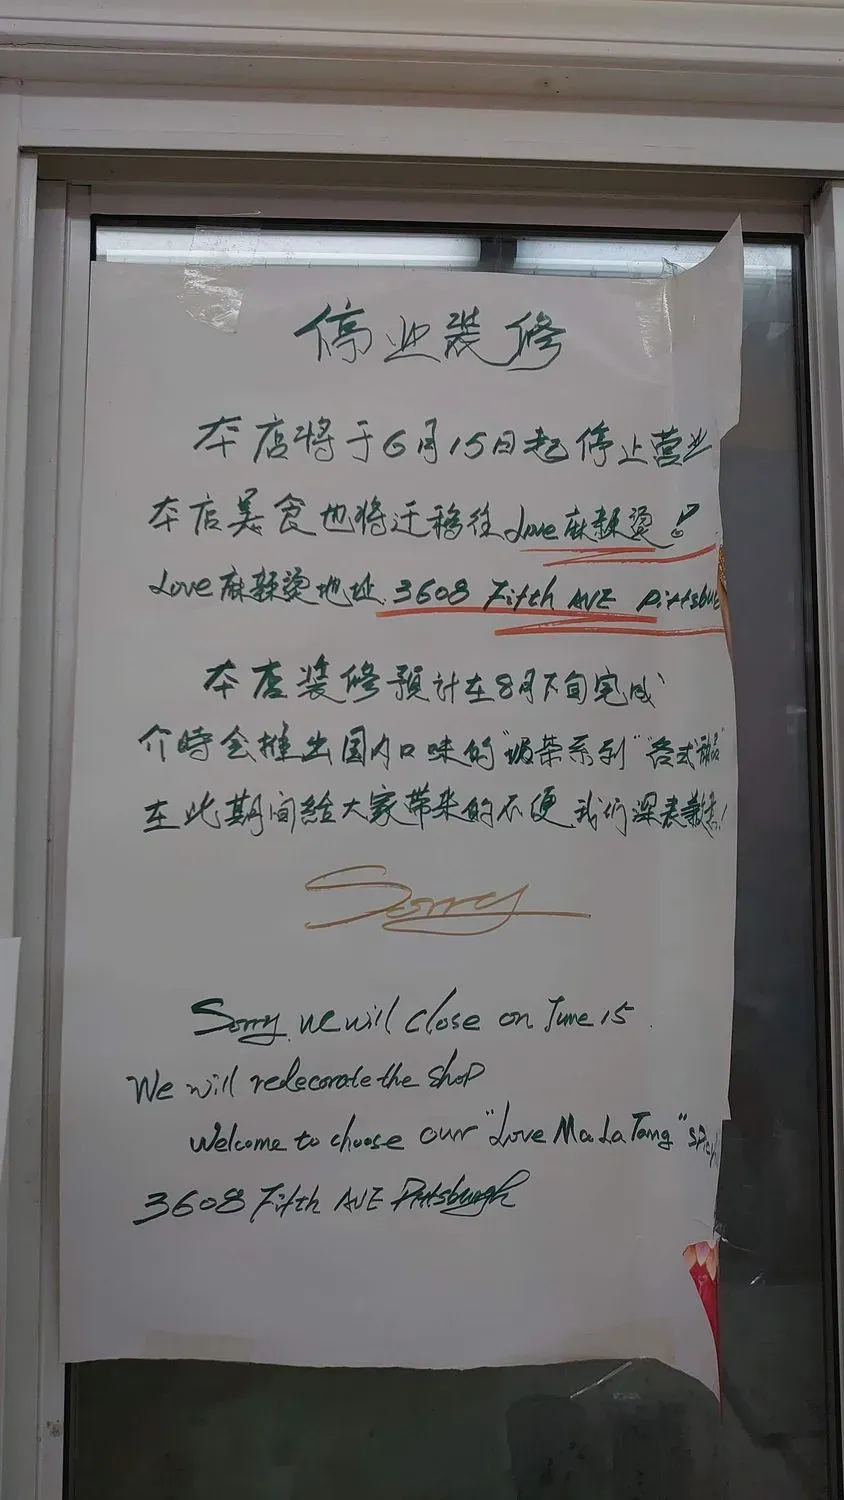 停业装修
本店将于6月15日起停止营业
本店美食也将迁移往Love麻辣烫!
Love麻辣烫地址:3608 Fifth AVE Pittsbu
本店装修预计在8月下旬完成
介時会推出国内口味的"奶茶系列""各式甜品"
在此期间给大家带来的不便我们深表歉意!
Sorry
Sorry, we will close on June 15.
We will redecorate the shop
Welcome to choose our "Love Ma La Tang"
3608 Fifth AVE Pittsburgh